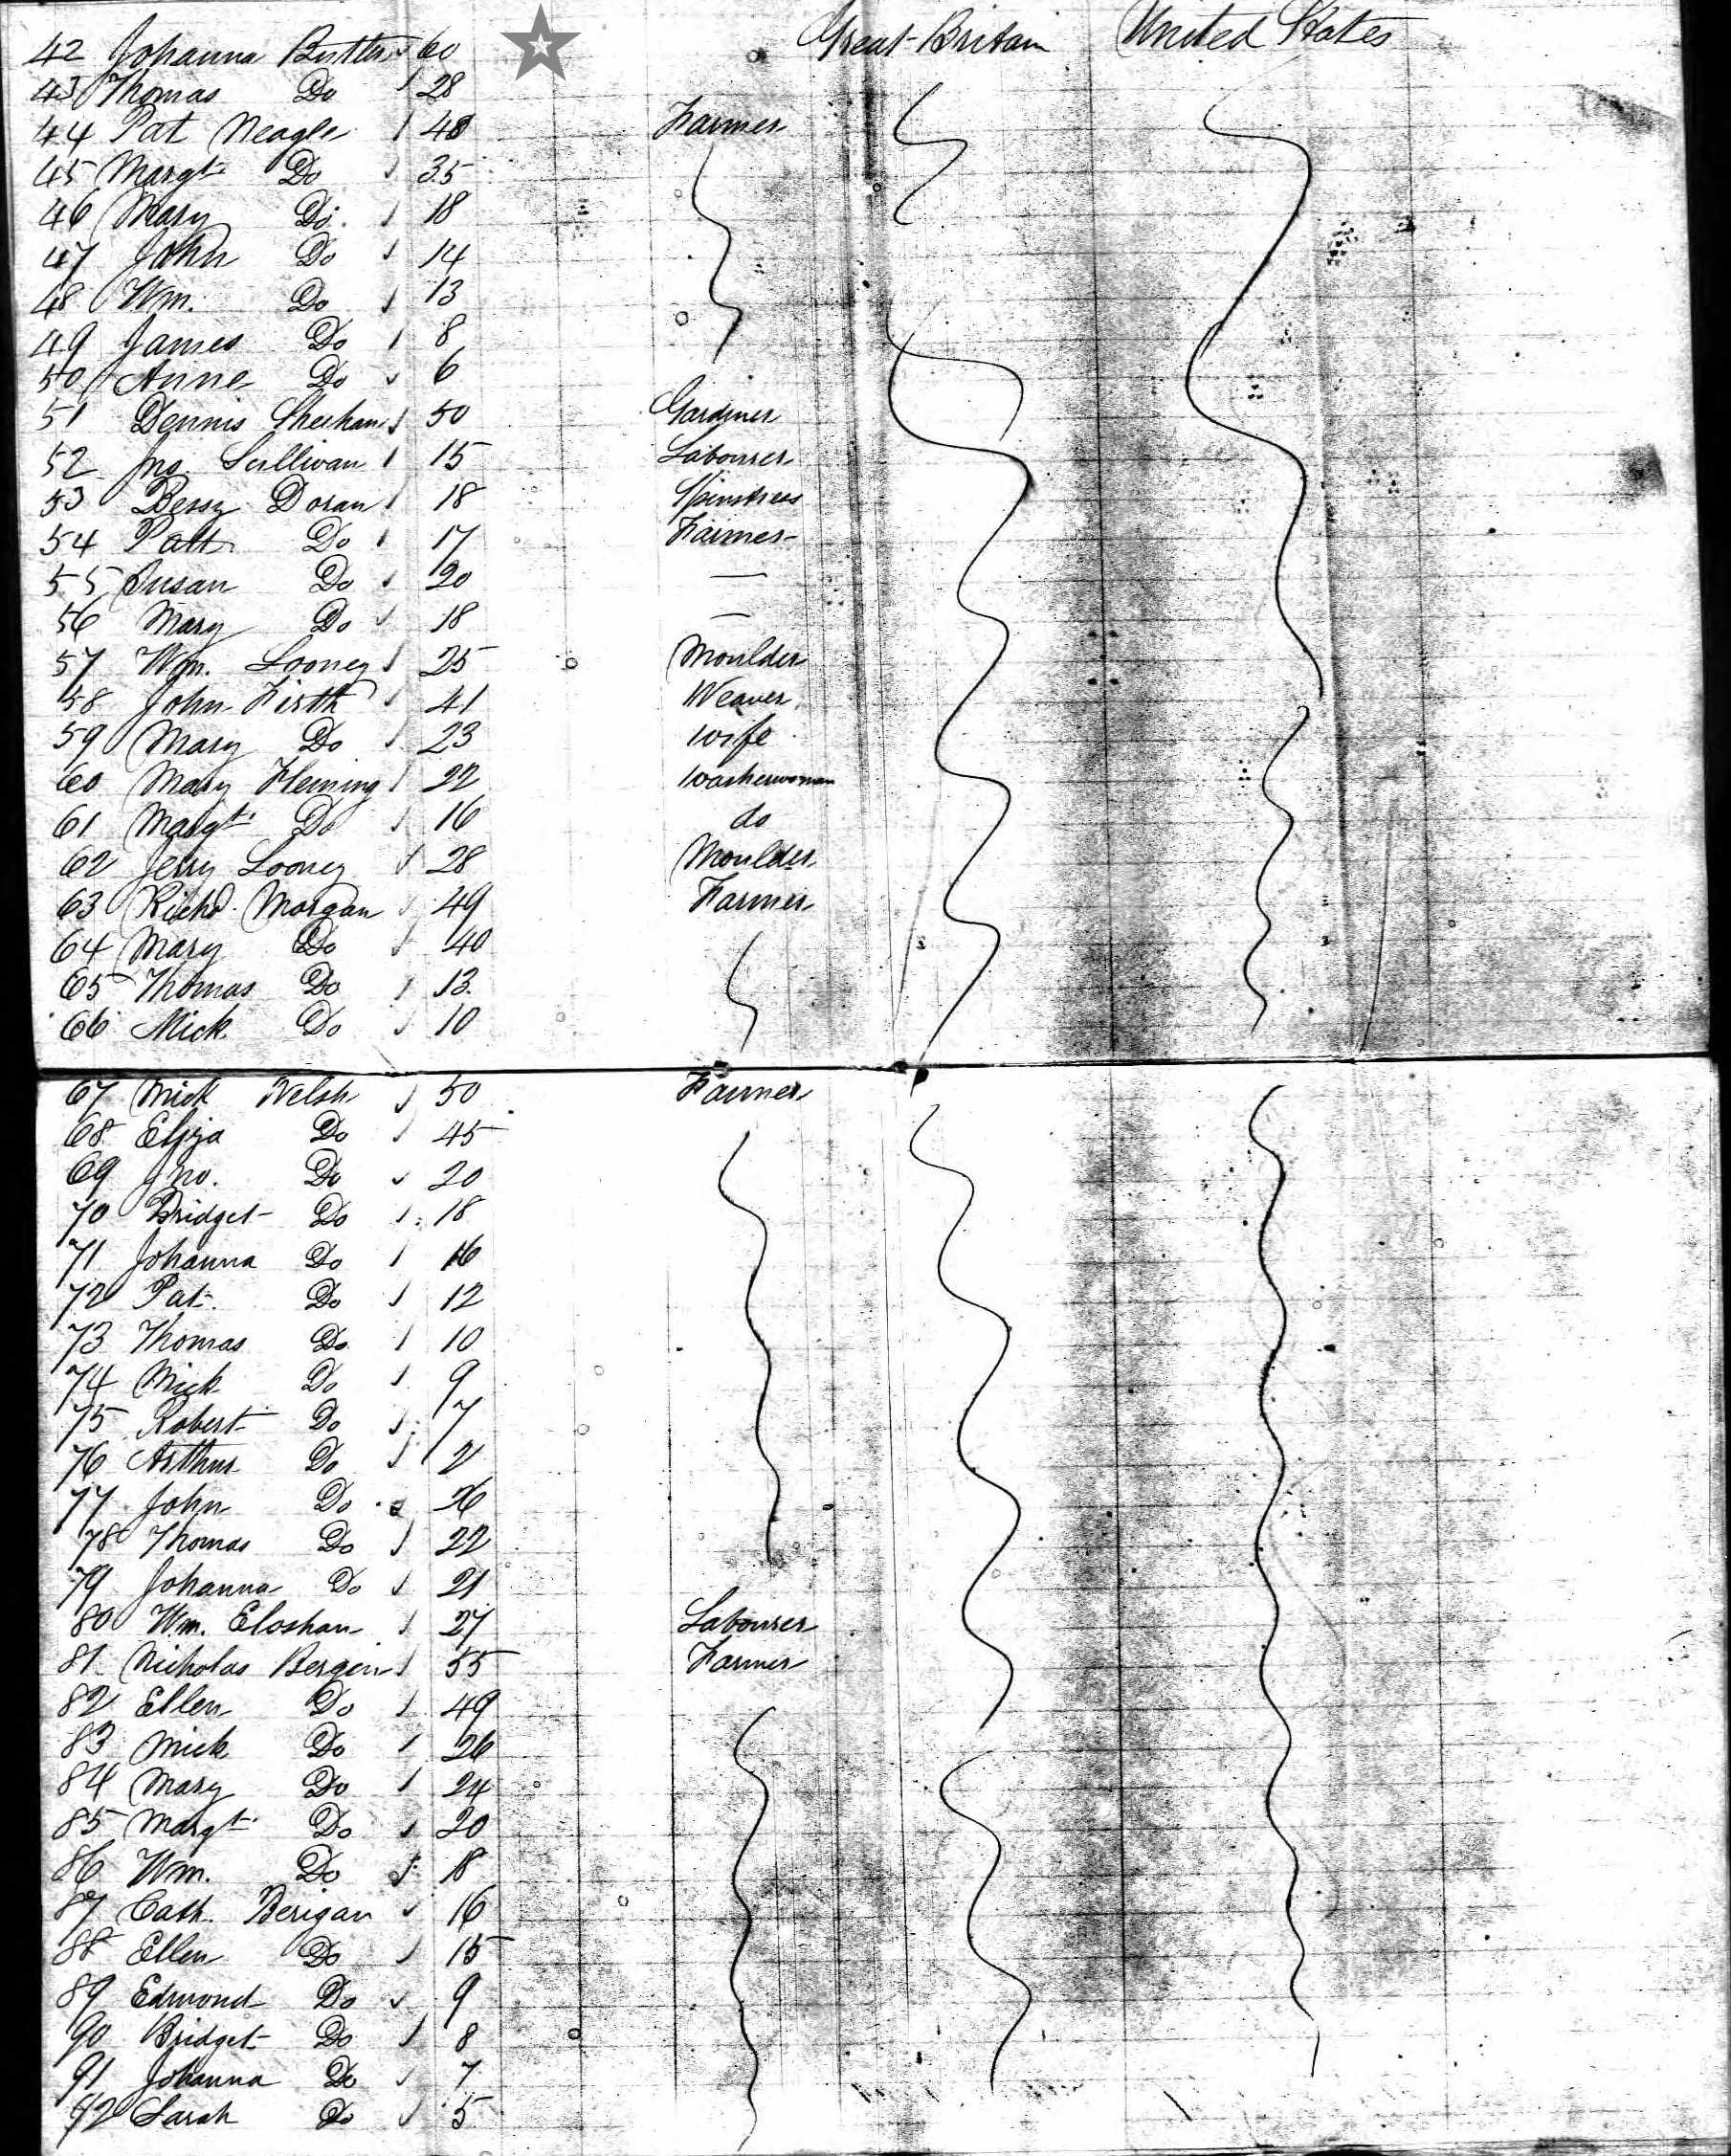 42 Johanna Butler 60 Great Britain United States
43 Thomas Do 28
44 Pat Neagle 40 Farmer
45 Margt. Do 35
46 Mary Do. 18
47 John Do 14
48 Wm. Do 13
49 James Do 8
50 Anne Do 6
51 Dennis Sheehan 50 Gardiner
52 Jno. Sullivan 15 Labourer
53 Bessy Doran 18 Spinstress
54 Patt Do 17 Farmer
55 Susan Do 20 —
56 Mary Do 18 —
57 Wm. Looney 25 Moulder
58 John Firth 41 Weaver
59 Mary Do 23 Wife
60 Mary Fleming 22 Washerwoman
61 Margt. Do 16 do
62 Jerry Looney 28 Moulder
63 Richd. Morgan 49 Farmer
64 Mary Do 40
65 Thomas Do 13
66 Mick Do 10
67 Mick Welsh 50 Farmer
68 Eliza Do 45
69 Jno. Do 20
70 Bridget Do 18
71 Johanna Do 16
72 Pat. Do 12
73 Thomas Do. 10
74 Mick Do 9
75 Robert Do 7
76 Arthur Do 2
77 John Do 26
78 Thomas Do 22
79 Johanna Do 21
80 Wm. Eloshan 27 Labourer
81 Nicholas Bergin 55 Farmer
82 Ellen Do 49
83 Mick Do 26
84 Mary Do 24
85 Margt. Do 20
86 Wm. Do 18
87 Cath. Berigan 16
88 Ellen Do 15
89 Edmond Do 9
90 Bridget Do 8
91 Johanna Do 7
92 Sarah Do 5